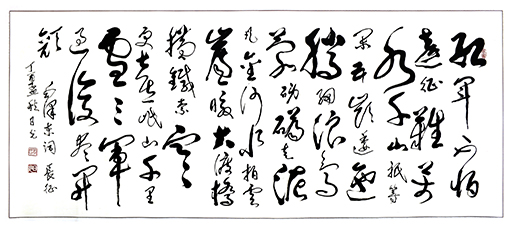 紅軍不怕
遠征難萬
水千山祇等
閑五嶺逶迤
騰細浪烏
蒙磅礴走泥
丸金沙水拍雲
崖暖大渡橋
橫鐵索寒
更喜岷山千里
雪三軍
過後盡開
顏
毛澤東詞 長征